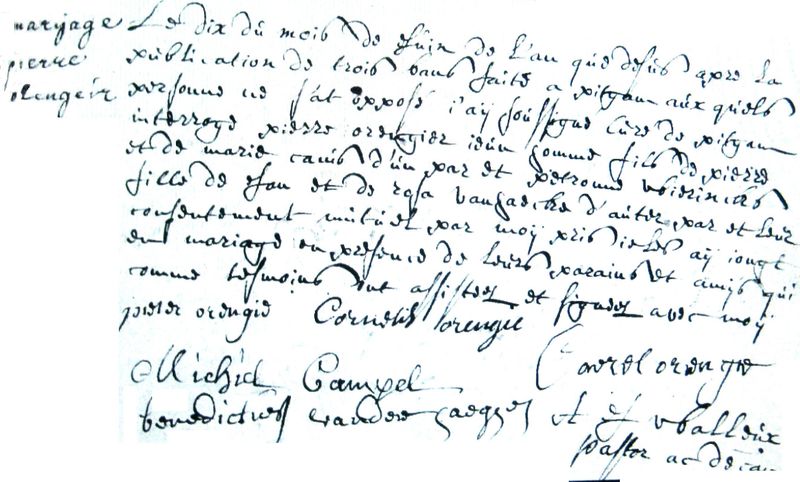 mariage
pierre
orengier
Le dix du mois de juin de l'an que desus apre la
publication de trois bans faite a pitgam aux quels
personne ne s'at opposé j'aÿ soussigné Curé de pitgam
interrogé pierre orengier jeun homme fils de pierre
et de marie canis d'un par et petronne
fille de jan et de rosa d'auter par et leur
consentement mutuel par moÿ pris je les aÿ joingt
en mariage en presence de leurs parains et amis qui
comme tesmoins ont assistees et signees avec moÿ
pieter orengié Cornelis orengié
Michiel Campel Carel orengie
benedictus vander et J
pastor ac